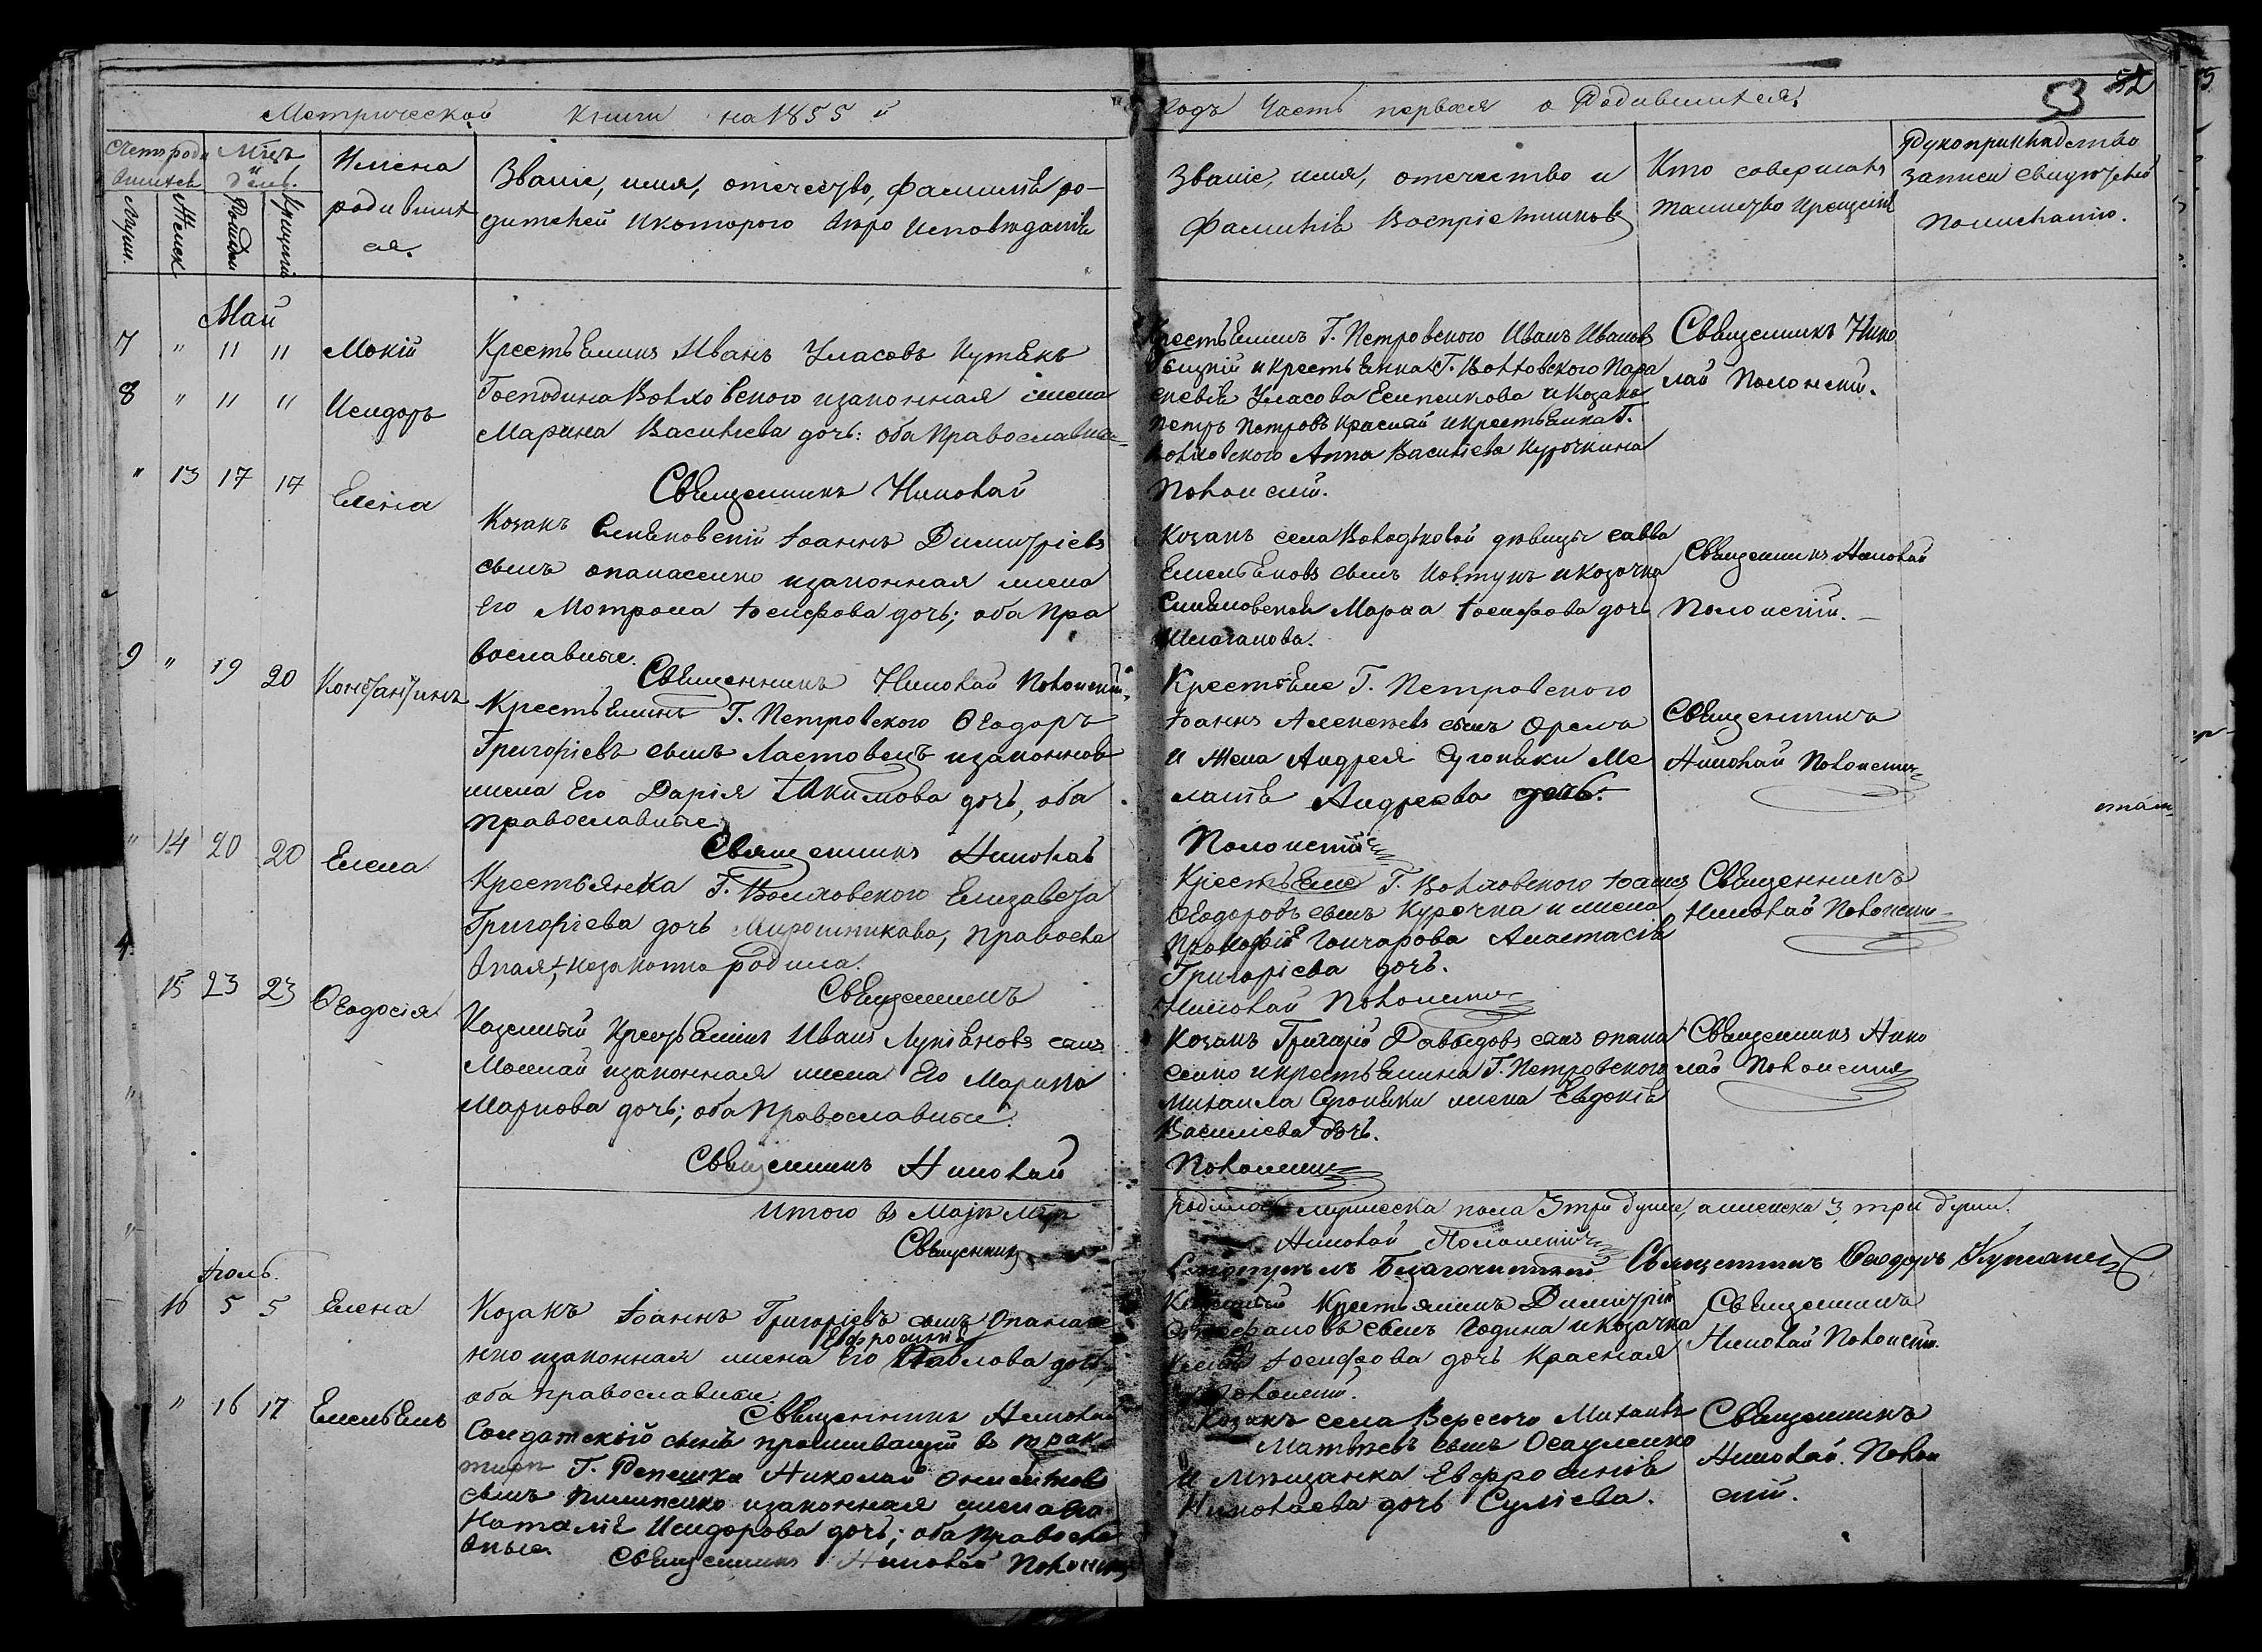 Метрической Книги на 1855 й
годъ Часть первая о Родившихся.
53
52
Счетъ роди
вшихся
Мѣцъ
и
день.
Имена
родивших
ся.
Званіе, имя, отечество, фамилія ро-
дителей и которого вѣроисповѣданія
Званіе, имя, отечество и
фамилія Воспріемниковъ
Кто совершалъ
таинство крещенія
Рукоприкладство
записи свидѣтелей
по желанію.
Мужеск.
Женск
Рожденія
Крещенія
Май
7 " 11 11 Мокій
8 " 11 11 Исидоръ
Крестьянинъ Иванъ Уласовъ Кутякъ
Господина Волховского и законная жена
Марина Васильева дочь: оба Православные
Священникъ Николай
Крестьянинъ Г. Петровского Иванъ Ивановъ
и крестьянка Г. Волховского Пара
скевія Уласова Есипенкова и Козакъ
Петръ Петровъ Красный и крестьянка Г.
Волховского Анна Васильева Курочкина
Полонскій.
Священникъ Нико
лай Полонскій.
" 13 17 17 Елена
Козакъ Іоаннъ Димитріевъ
сынъ Опанасенко и законная жена
Его Мотрона Іосифова дочь; оба Пра
вославные.
Священникъ Николай Полонскій.
Козакъ села Володьковой дѣвицы Савва
Емельяновъ сынъ Ковтунъ и козачка
Марѳа Іосифова дочь
Священникъ Николай
Полонскій.
9 " 19 20 Константинъ
Крестьянинъ Г. Петровского Ѳеодоръ
Григоріевъ сынъ Ластовецъ и законная
жена Его Дарія Іякимова дочь, оба
православные.
Священникъ Николай
Крестьяне Г. Петровского
Іоаннъ Алексѣевъ сынъ Орелъ
и жена Андрея Ме
ланія Андреева дочь.
Полонскій
Священникъ
Николай Полонскій
" 14 20 20 Елена
Крестьянка Г. Волховского Елизавета
Григоріева дочь Мирошникова, Правосла
вная, незаконно родила.
Священникъ
Крестьяне Г. Волховского Іоаннъ
Ѳеодоровъ сынъ Курочка и жена
Прокофія Гончарова Анастасія
Григоріева дочь.
Николай Полонскій
Священникъ
Николай Полонскій
15 23 23 Ѳеодосія
Казенный Крестьянинъ Иванъ Лукіяновъ сынъ
и законная жена Его Марина
Маркова дочь; оба Православные.
Священникъ Николай
Козакъ Григорій Давыдовъ сынъ Опана
сенко и крестьянина Г. Петровского
Михаила жена Евдокія
Василіева дочь.
Полонскій
Священникъ Нико
лай Полонскій
Итого въ Маѣ Мцѣ
родилось мужеска пола 3 три души, а женска 3 три души.
Священникъ
Николай Полонскій
Смотрѣлъ Благочинный Священникъ Ѳеодоръ
Іюль.
16 5 5 Елена
Козакъ Іоаннъ Григоріевъ сынъ Опанасе
Евфросинія
нко и законная жена Его Павлова дочь,
оба православные.
Священникъ Николай
Казенный Крестьянинъ Димитрій
Стефановъ сынъ Година и козачка
Іосифова дочь Красная
Полонскій.
Священникъ
Николай Полонскій.
" 16 17 Емельянъ
Солдатскій сынъ проживающій въ трак
тирѣ Г. Репешка Николай
сынъ Пилипенко и законная жена его
Наталія Исидорова дочь; оба Правосла
вные.
Священникъ Николай Полонскій
Козакъ села Вересоча Михаилъ
Матвѣевъ сынъ Осауленко
и мѣщанка Евфросинія
Николаева дочь Суліева.
Священникъ
Николай Полон
скій.